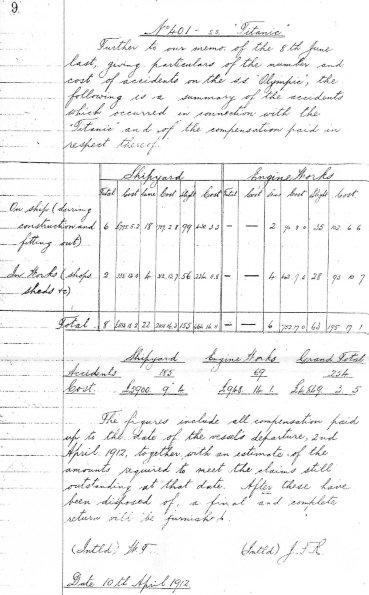 9
No 401 - ss. "Titanic"
Further to our memo. of the 8th June
last, giving particulars of the number and
cost of accidents on the ss "Olympic", the
following is a summary of the accidents
which occurred in connection with the
"Titanic" and of the compensation paid in
respect thereof.
Shipyard Engine Works
Fatal Cost Cost Slight Cost Fatal Cost Cost Slight Cost
On ship (during
construction and 6 18 99 - - 2 35 6 6
fitting out)
In Works (shops 2 4 56 - - 4 28 93 10 7
sheds &c)
Total 8 22 155 - - 6 63 195 17 1
Shipyard Engine Works Grand Total
Accidents 185 69 254
Cost. 14. 1. 3. 5
The figures include all compensation paid
up to the date of the vessels departure, 2nd
April 1912, together with an estimate of the
amounts required to meet the claims still
outstanding at that date. After these have
been disposed of, a final and complete
return will be furnished.
(Intld) W.T. (Intld) J.F.R
Date 10th April 1912